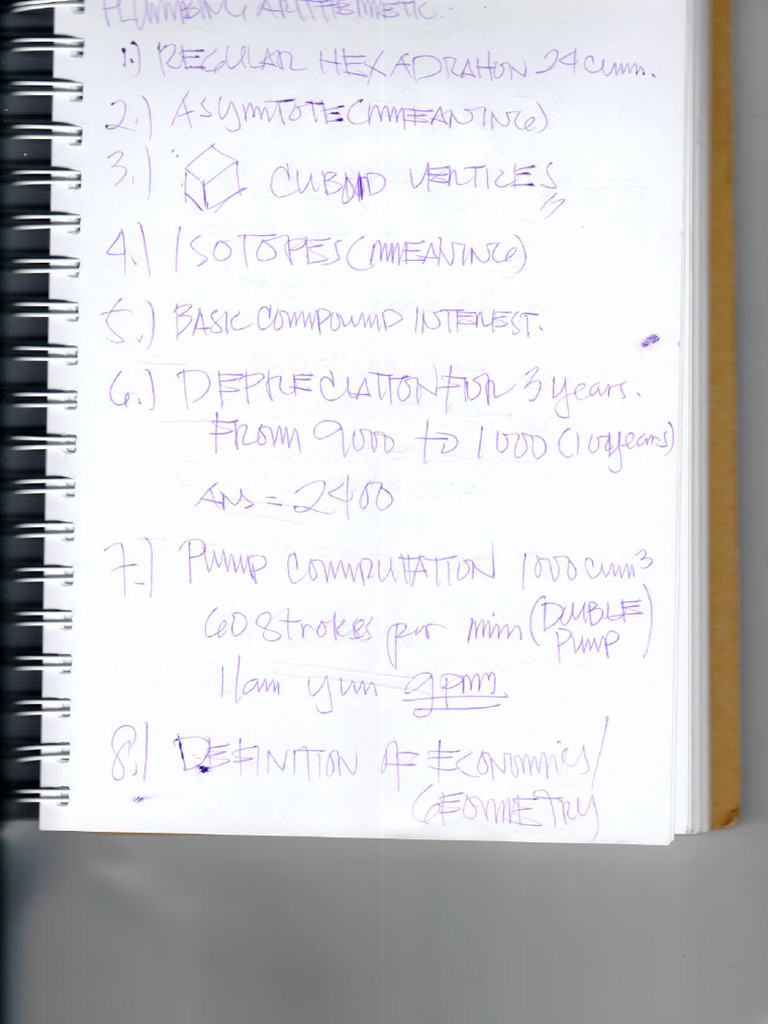 PLUMBING ARITHEMETIC.
1.) REGULAR HEXADRAHON 24 cumm.
2.) ASYMTOTE (MEANING)
3.) CUBOID VERTICES
4.) ISOTOPES (MEANING)
5.) BASIC COMPOUND INTEREST.
6.) DEPRECIATION FOR 3 years.
FROM 9000 to 1000 (10 years)
ANS = 2400
7.) PUMP COMPUTATION 1000 cumm³
60 strokes per min (DOUBLE PUMP)
Ilan yun gpm
8.) DEFINITION OF ECONOMICS/
GEOMETRY